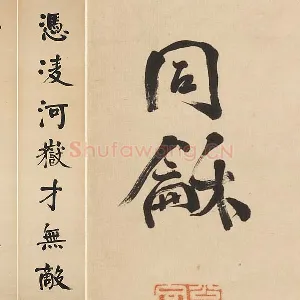 同龢
憑凌河嶽才無敵
Shufawang.CN